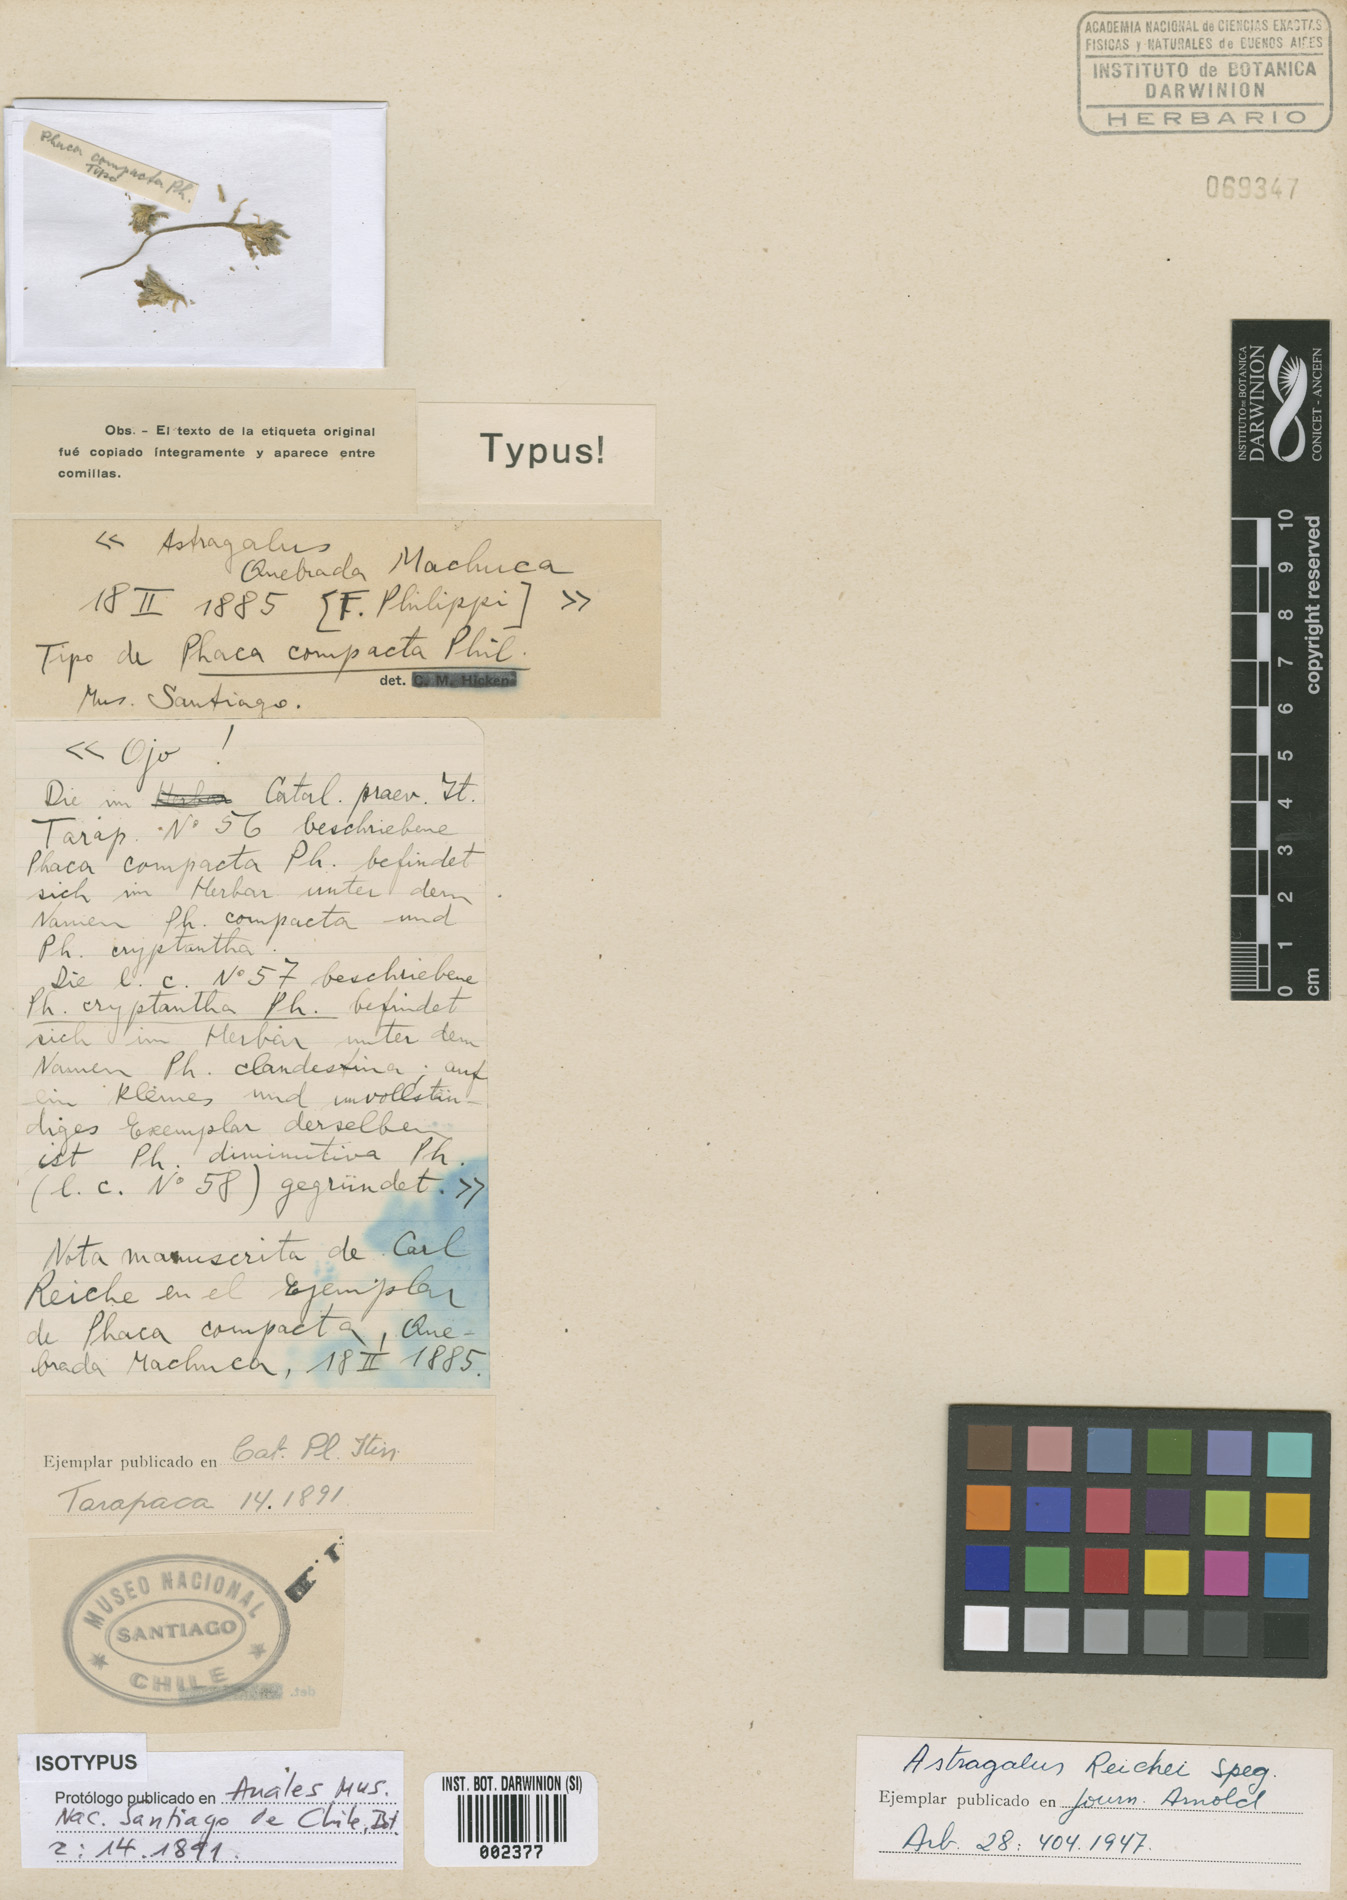 ACADEMIA NACIONAL de CIENCIAS EXACTAS
FISICAS y NATURALES de BUENOS AIRES
INSTITUTO de BOTANICA
DARWINION
HERBARIO
069347
Phaca compacta Ph.
Tipo
Obs. - El texto de la etiqueta original
fué copiado íntegramente y aparece entre
comillas.
Typus!
<< Astragalus
Quebrada Machuca
18 II 1885 [F. Philippi] >>
Tipo de Phaca compacta Phil.
det. C. M. Hicken
Mus. Santiago.
<< Ojo !
Die im Catal. praev. It.
Tarap. Nº 56 beschriebene
Phaca compacta Ph. befindet
sich im Herbar unter dem
Namen Ph. compacta und
Ph. cryptantha.
Die l. c. Nº 57 beschriebene
Ph. cryptantha Ph. befindet
sich im Herbar unter dem
Namen Ph. clandestina; auf
ein kleines und unvollstän-
diges Exemplar derselben
ist Ph. diminutiva Ph.
(l. c. Nº 58) gegründet. >>
Nota manuscrita de Carl
Reiche en el Ejemplar
de Phaca compacta, Que-
brada Machuca, 18 II 1885.
Ejemplar publicado en Cat. Pl. Itin
Tarapaca 14. 1891
MUSEO NACIONAL
SANTIAGO
CHILE
det.
ISOTYPUS
Protólogo publicado en Anales Mus.
Nac. Santiago de Chile, Bot.
2: 14. 1891.
INST. BOT. DARWINION (SI)
002377
Astragalus Reichei Speg.
Ejemplar publicado en Journ. Arnold
Arb. 28: 404. 1947.
INSTITUTO DE BOTANICA
DARWINION
CONICET - ANCEFN
copyright reserved
10
9
8
7
6
5
4
3
2
1
0
cm